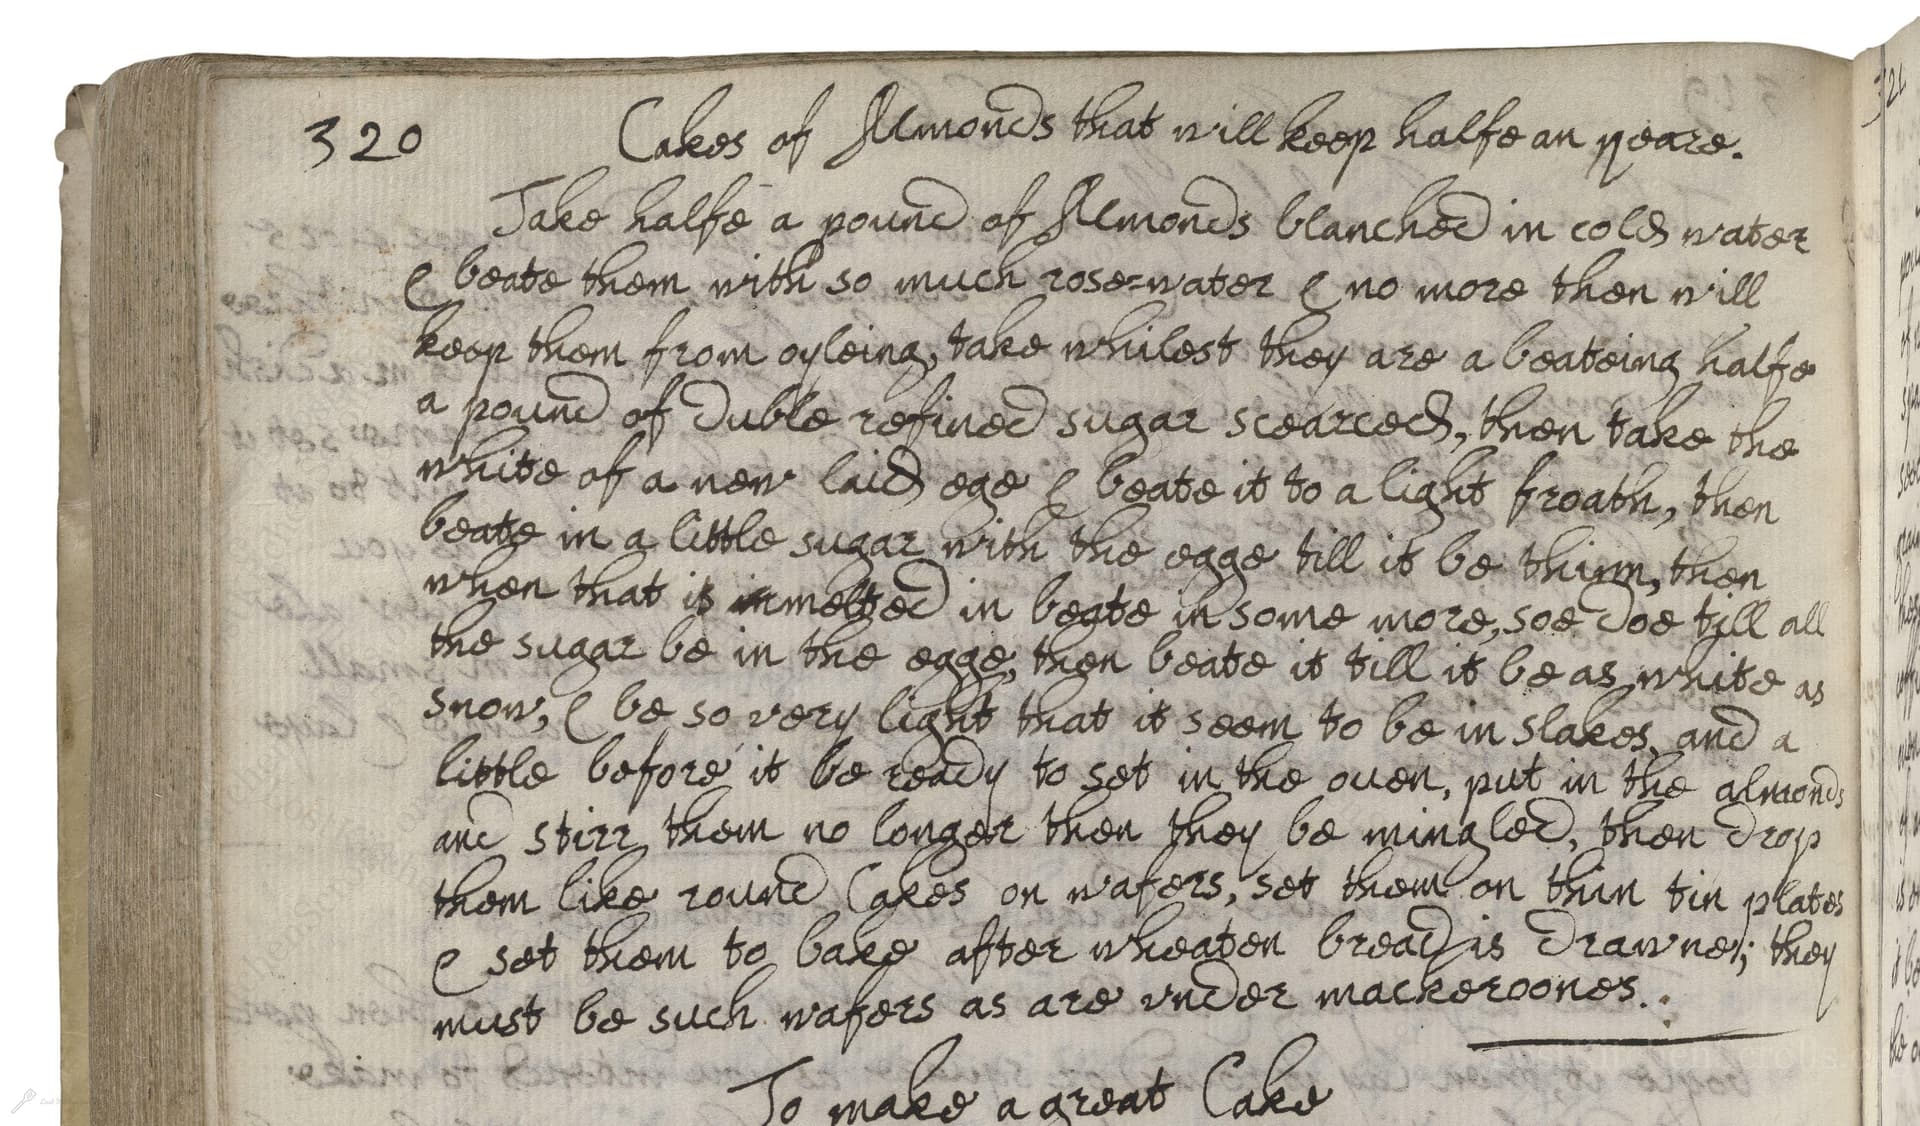 320 Cakes of Almonds that will keep halfe an yeare.
Take halfe a pound of Almonds blanched in cold water
& beate them with so much rose=water & no more then will
keep them from oyleing, take whilest they are a beateing halfe
a pound of duble refined sugar scearced, then take the
white of a new laid ege & beate it to a light froath, then
beate in a little sugar with the egge till it be thinn, then
when that is melted in beate in some more, soe doe till all
the sugar be in the egge, then beate it till it be as white as
snow, & be so very light that it seem to be in slakes, and a
little before it be ready to set in the oven, put in the almonds
and stirr them no longer then they be mingled, then drop
them like round Cakes on wafers, set them on thin tin plates
& set them to bake after wheaten bread is drawne; they
must be such wafers as are vnder mackeroones.
To make a great Cake